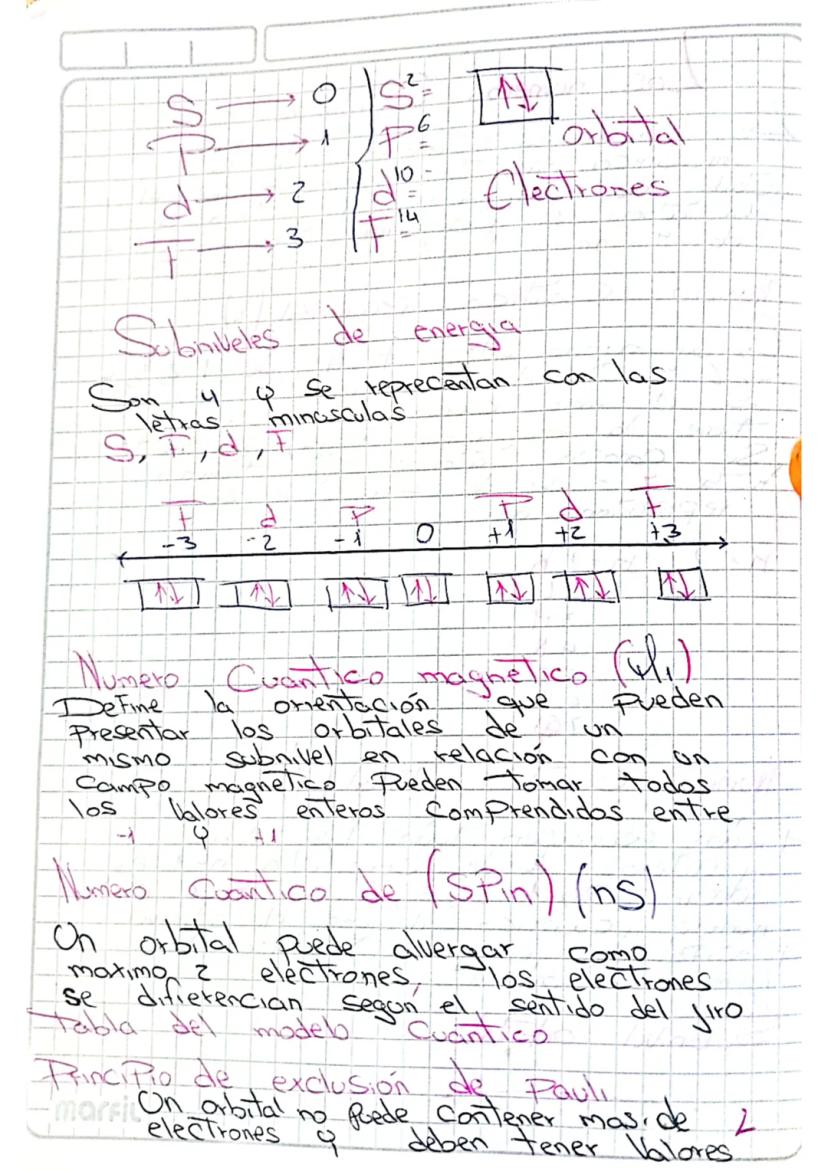 S → 0 S²=
P → 1 P⁶= orbital
d → 2 d¹⁰= Electrones
F → 3 F¹⁴=
Subniveles de energia
Son 4 y se reprecentan con las
letras minusculas
S, P, d, F
F d P P d F
-3 -2 -1 0 +1 +2 +3
Numero Cuantico magnetico
Define la orientación que pueden
Presentar los orbitales de un
mismo subnivel en relación con un
Campo magnetico. Pueden tomar todos
los Valores enteros comprendidos entre
-1 y +1
Numero Cuantico de (SPin) (nS)
Un orbital puede alvergar como
maximo 2 electrones, los electrones
se difierencian según el sentido del jiro
Tabla del modelo Cuántico
Principio de exclusión de Pauli
Un orbital no puede contener mas de 2
electrones y deben tener Valores
marfil